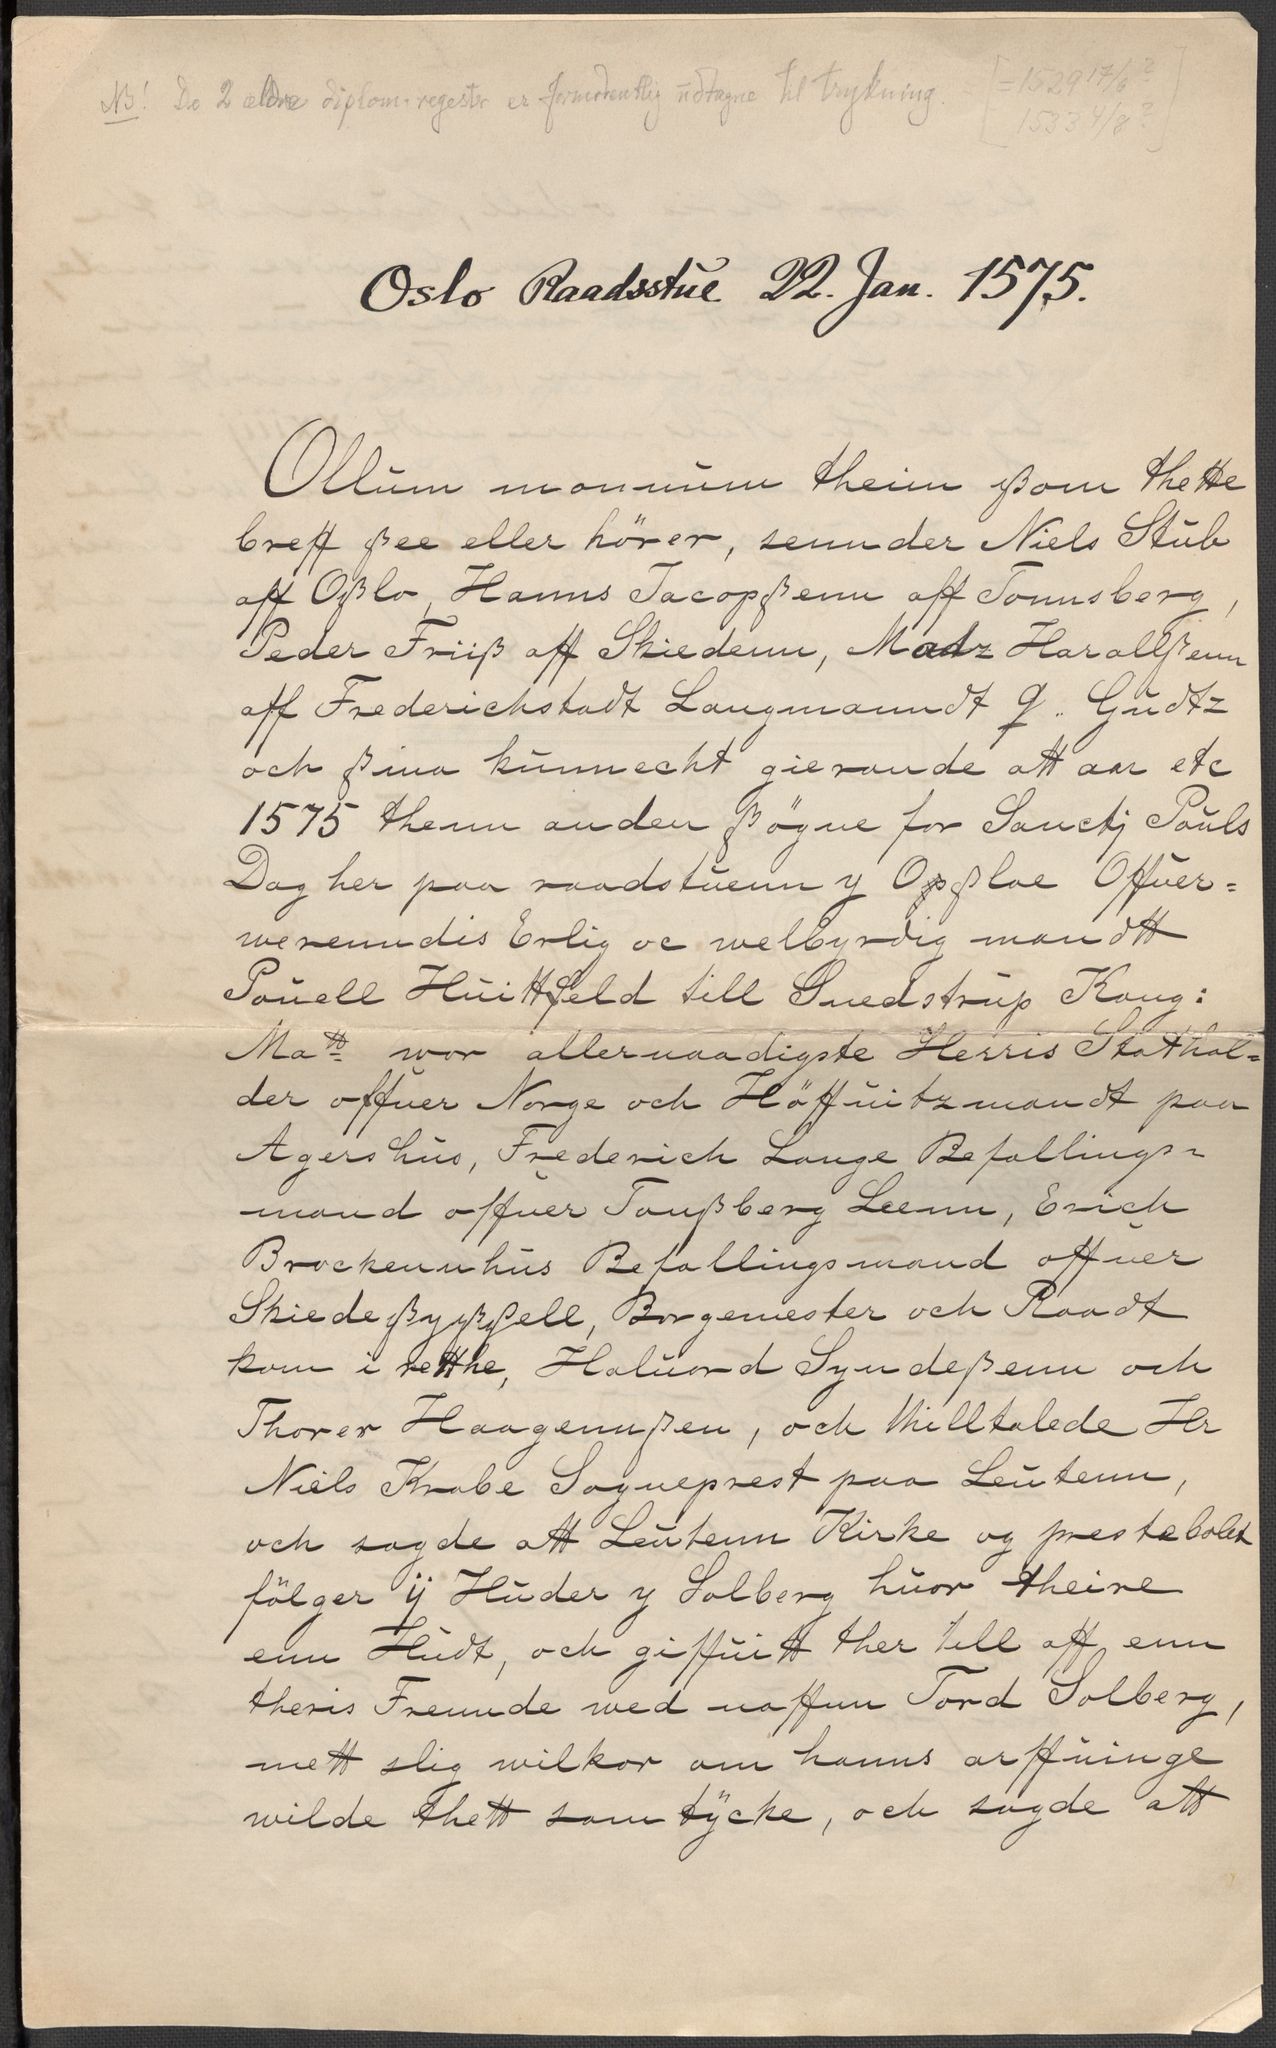 NB! De 2 ældre diplom-regester er formodentlig udtagne til trykning. [= 1529 17/6 ?
1533 4/8 ?]
Oslo Raadsstue 22. Jan. 1575.
Ollum monnum theim ßom thette
breff ßee eller hörer, sennder Niels Stub
aff Oßlo, Hanns Jacopßenn aff Tonnsberg,
Peder Friiß aff Skiedenn, Madz Harallßenn
aff Frederichstadt Laugmanndt q. Gudtz
och ßina kunnecht gierande att aar etc
1575 thenn anden ßögne for Sanctj Pouls
Dag her paa raadstuenn y Opßloe Offuer=
werenndis Erlig oc welbyrdig mandtt
Pouell Huittfeld till Suedstrup Kong:
Matt= wor allernaadigste Herris Stathol=
der offuer Norge och Höffuitzmandt paa
Agershus, Frederich Lange Befallings=
mand offuer Tonßberg Leenn, Erich
Brockennhus Befallingsmand offuer
Skiedeßyßßell, Borgemester och Raadt
kom i retthe, Haluord Syndeßenn och
Thorer Haagennßen, och thilltalede Hr
Niels Krabe Sogneprest paa Leutenn,
och sagde att Leutenn Kirke og prestebolet
fölger ij Huder y Solberg huor theire
enn Hudt, och giffuitt ther till aff enn
theris Frennde wed naffnn Tord Solberg,
mett slig wilkor om hanns arffuinge
wilde thett samtÿcke, och sagde att